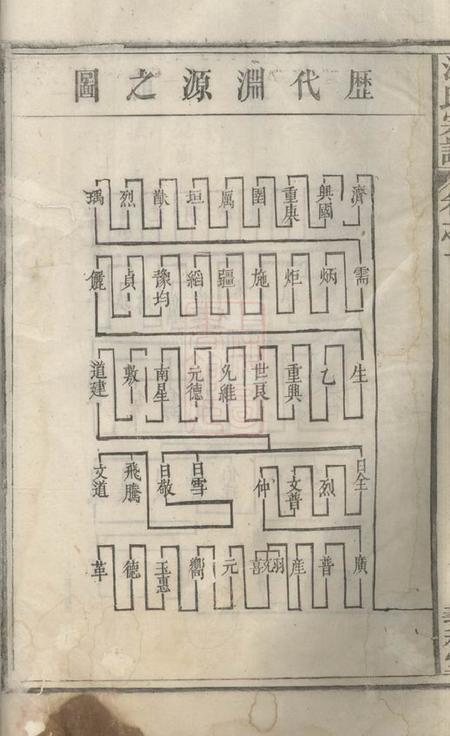 歷代淵源之圖
濟 興國 重庚 圉 厲 垣 猷 烈 瑀
需 炳 炬 施 疆 縚 豫均 貞 儼
生 乙 重興 世艮 允維 元德 南星 敷 道建
日全 烈 文普 仲 日雪 日敬 飛騰 文道
廣 普 産 羽 喜 元 嚮 玉惠 德 革
氏宗譜